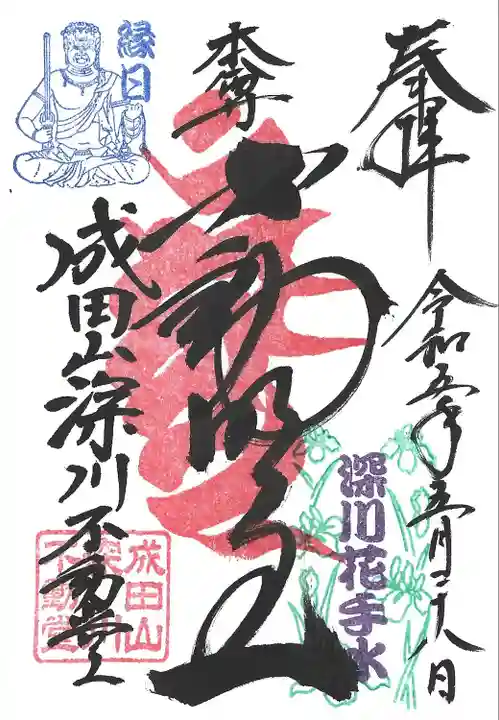 奉拝
令和五年五月二十八日
本尊
不動明王
成田山深川不動堂
縁日
深川花手水
成田山
深川
不動堂